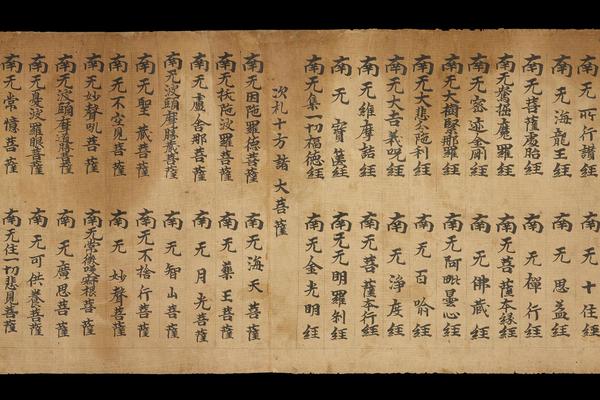 南无所行讃經　南无十住經
南无海龍王經　南无思益經
南无菩薩處胎經　南无禪行經
南无鴦掘魔羅經　南无菩薩本縁經
南无密迹金剛經　南无佛藏經
南无大樹緊那羅經　南无阿毗曇心經
南无大悲分陁利經　南无百喻經
南无大吉義呪經　南无浄度經
南无維摩詰經　南无菩薩本行經
南无寳篋經　南无无明羅刹經
南无集一切福德經　南无金光明經
次礼十方諸大菩薩
南无因陁羅德菩薩　南无海天菩薩
南无拔陁波羅菩薩　南无藥王菩薩
南无盧舍那菩薩　南无月光菩薩
南无波頭摩勝藏菩薩　南无智山菩薩
南无聖藏菩薩　南无不捨行菩薩
南无不空見菩薩　南无妙聲菩薩
南无妙聲吼菩薩　南无常微笑寂根菩薩
南无波頭摩道勝菩薩　南无廣思菩薩
南无憂波羅眼菩薩　南无可供養菩薩
南无常憶菩薩　南无住一切悲見菩薩